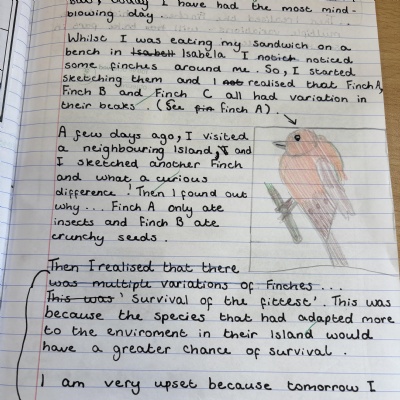 But, today I have had the most mind-
blowing day.
Whilst I was eating my sandwich on a
bench in Isabell Isabela I notich noticed
some finches around me. So, I started
sketching them and I not realised that Finch A,
Finch B and Finch C all had variation in
their beaks. (See fin finch A).
A few days ago, I visited
a neighbouring Island, I and
I sketched another Finch
and what a curious
difference! Then I found out
why... Finch A only ate
insects and Finch B ate
crunchy seeds.
Then I realised that there
was multiple variations of Finches...
This was 'Survival of the fittest'. This was
because the species that had adapted more
to the enviroment in their Island would
have a greater chance of survival.
I am very upset because tomorrow I